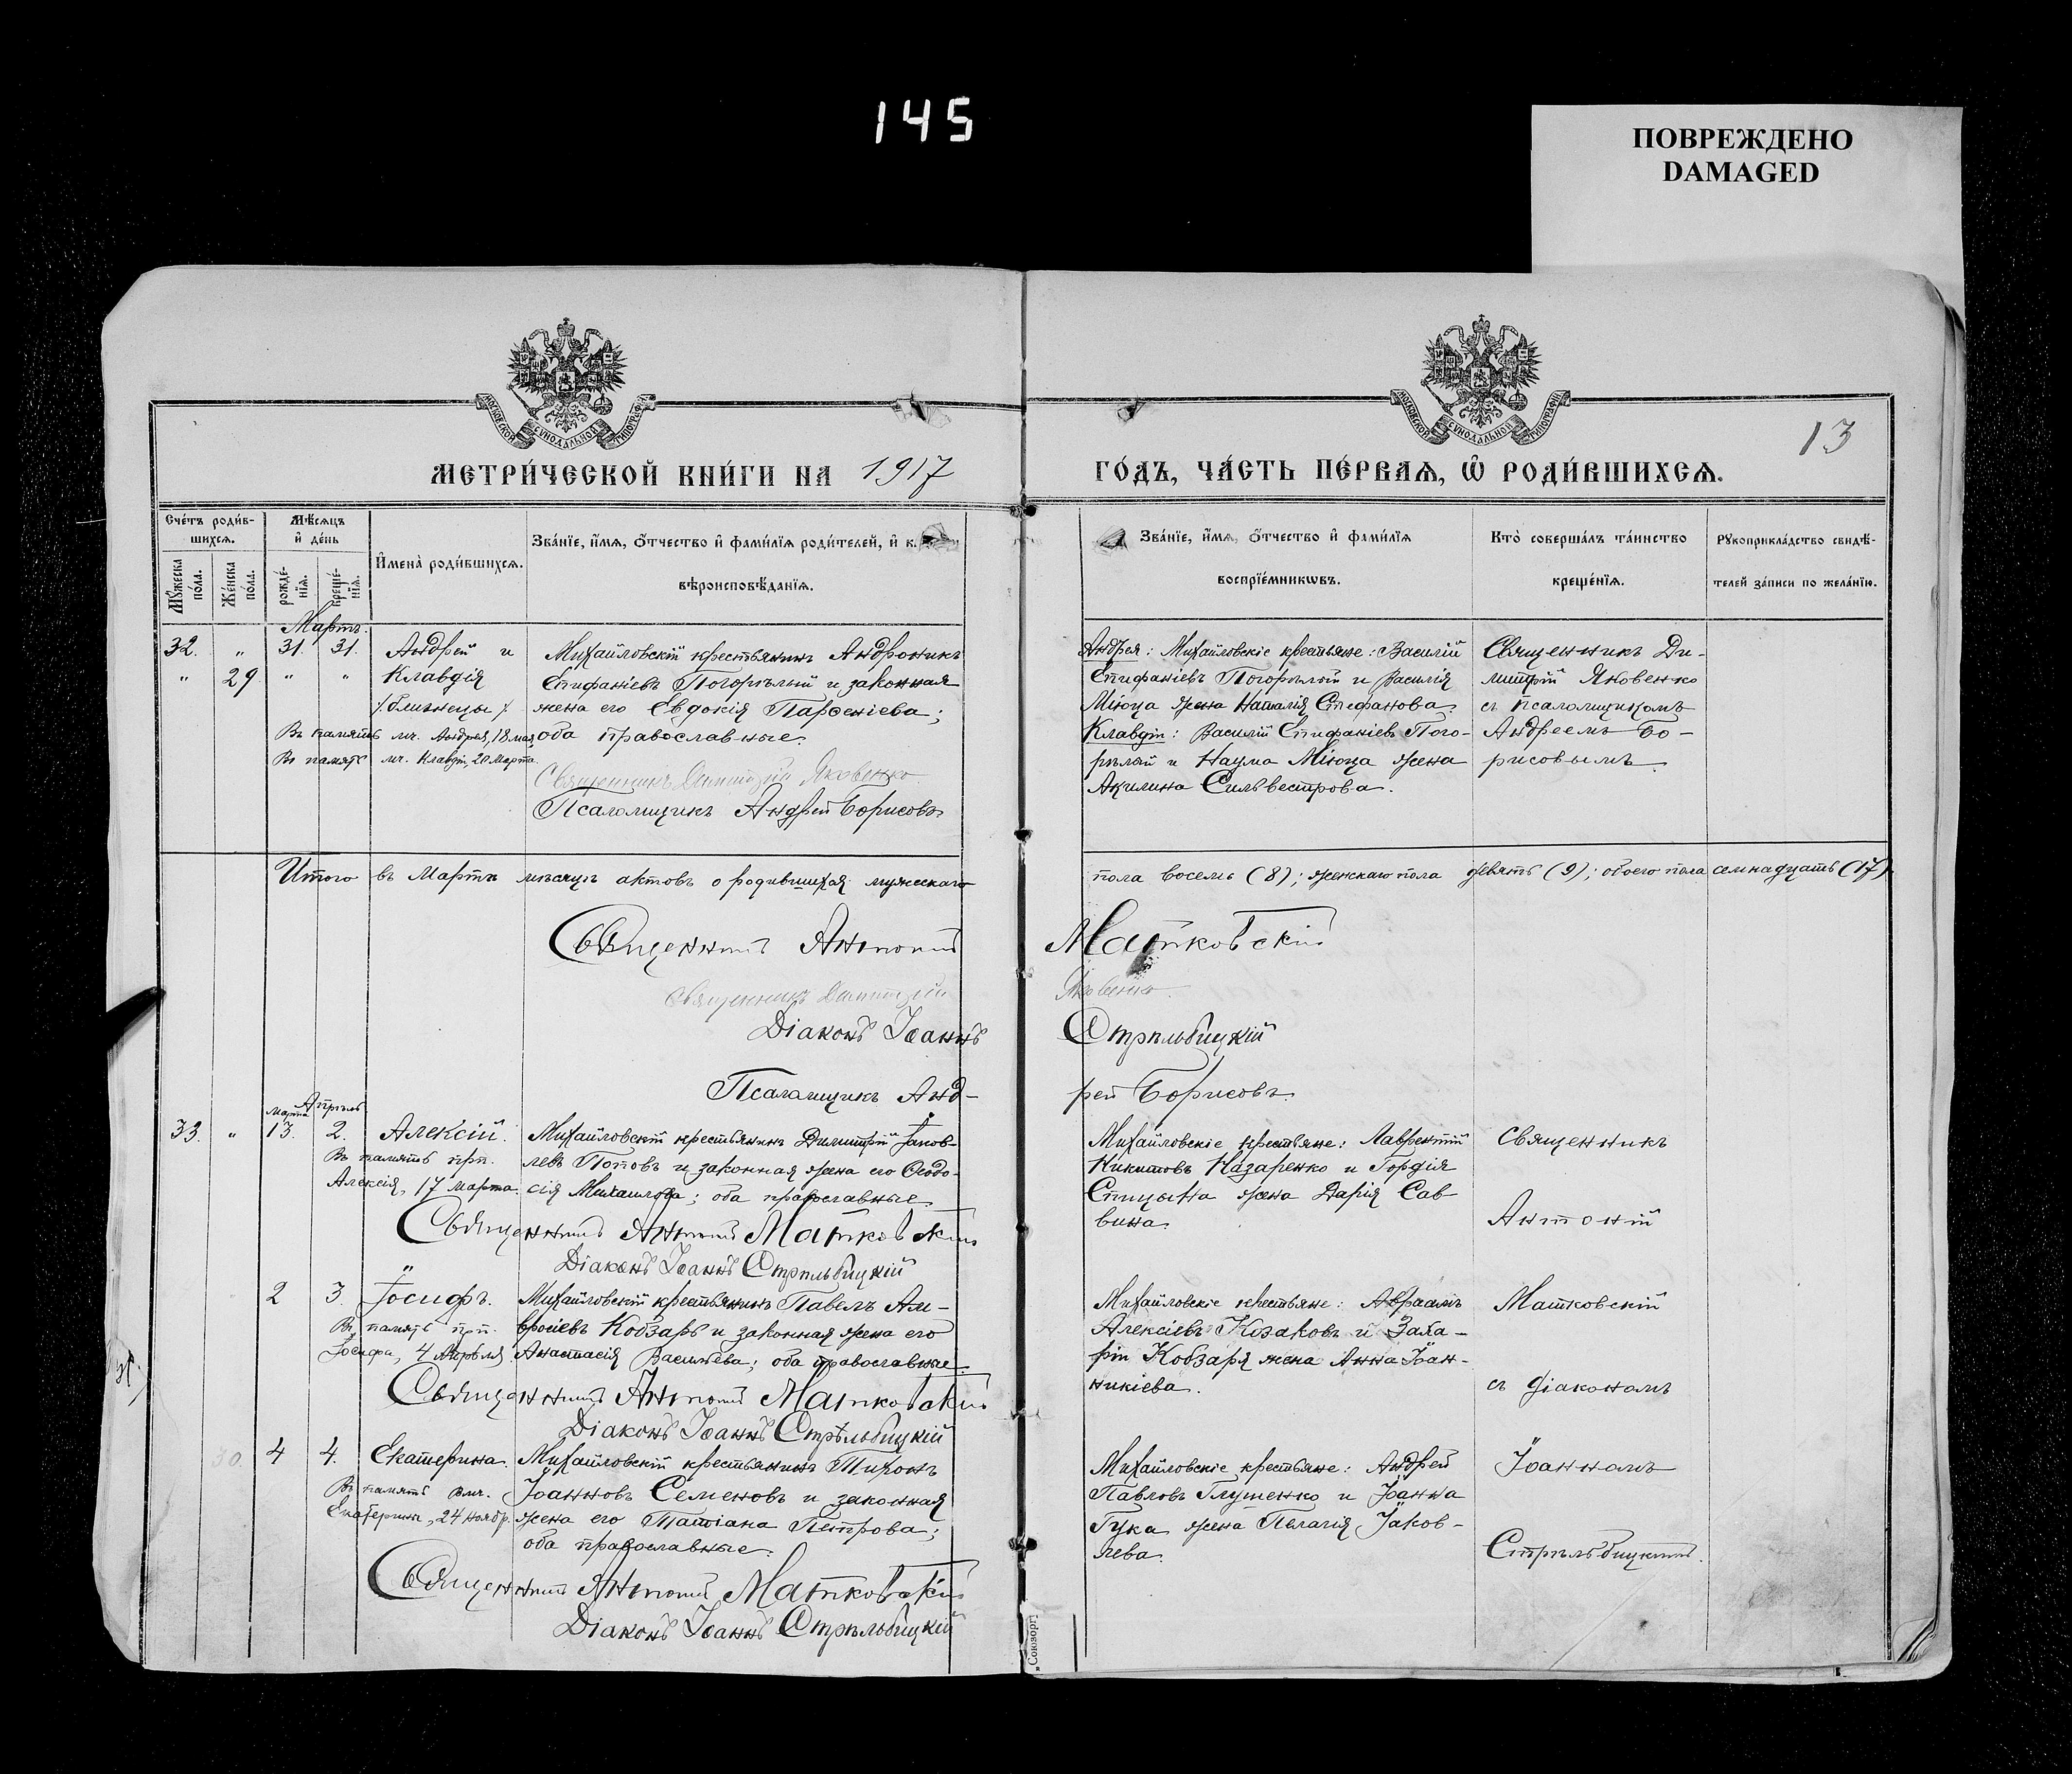 145
ПОВРЕЖДЕНО
DAMAGED
МОСКОВСКОЙ СУНОДАЛЬНОЙ ТИПОГРАФІИ
МОСКОВСКОЙ СУНОДАЛЬНОЙ ТИПОГРАФІИ
13
МЕТРИ́ЧЕСКОЙ КНИ́ГИ НА 1917
ГО́ДЪ, ЧА́СТЬ ПЕ́РВАѦ, Ѡ РОДИ́ВШИХСѦ.
Сче́тъ роди́в-
шихсѧ.
Мѣ́сѧцъ
и҆ де́нь
Мꙋ́жеска
по́ла.
Же́нска
по́ла.
рожде́-
нїѧ.
креще́-
нїѧ.
И҆мена̀ роди́вшихсѧ.
Зва́нїе, и҆́мѧ, ѻ҆́тчество и҆ фами́лїѧ роди́телей, и҆ к.
вѣроисповѣ́данїѧ.
Зва́нїе, и҆́мѧ, ѻ҆́тчество и҆ фами́лїѧ
воспрїе́мникѡвъ.
Кто̀ соверша́лъ та́инство
креще́нїѧ.
Рꙋкоприкла́дство свидѣ́-
телей за́писи по жела́нїю.
Мартъ.
32. " 31. 31. Андрей и
" 29 " " Клавдія
/близнецы/
Въ память мч. Андрея, 18 мая,
Въ память мч. Клавдіи, 20 Марта.
Михайловскій крестьянинъ Андроникъ
Епифаніевъ Погорѣлый и законная
жена его Евдокія Парѳеніева;
оба православные.
Священникъ Димитрій Яковенко.
Псаломщикъ Андрей Борисовъ
Андрея: Михайловскіе крестьяне: Василій
Епифаніевъ Погорѣлый и Василія
Міюца жена Наталія Стефанова.
Клавдіи: Василій Епифаніевъ Пого-
рѣлый и Наума Міюца жена
Акилина Сильвестрова.
Священникъ Ди-
митрій Яковенко
съ псаломщикомъ
Андреемъ Бо-
рисовымъ.
Итого въ Мартѣ мѣсяцѣ актовъ о родившихся: мужескаго
пола восемь (8); женскаго пола девять (9); обоего пола семнадцать (17).
Священникъ Антоній Матковскій
Священникъ Димитрій Яковенко.
Діаконъ Іоаннъ Стрѣльбицкій
Псаломщикъ Анд-
рей Борисовъ.
Апрѣль
Марта
33. " 13. 2. Алексій.
Въ память прп.
Алексія, 17 Марта.
Михайловскій крестьянинъ Димитрій Іаков-
левъ Поповъ и законная жена его Ѳеодо-
сія Михаилова; оба православные.
Священникъ Антоній Матковскій
Діаконъ Іоаннъ Стрѣльбицкій
Михайловскіе крестьяне: Лаврентій
Никитовъ Назаренко и Гордія
Спицына жена Дарія Сав-
вина.
Священникъ
Антоній
2 3. Іосифъ.
Въ память прп.
Іосифа, 4 Апрѣля
Михайловскій крестьянинъ Павелъ Ам-
вросіевъ Кобзарь и законная жена его
Анастасія Васильева; оба православные.
Священникъ Антоній Матковскій
Діаконъ Іоаннъ Стрѣльбицкій
Михайловскіе крестьяне: Авраамъ
Алексіевъ Козаковъ и Заха-
рія Кобзаря жена Анна Іоан-
никіева.
Матковскій
съ діакономъ
30. 4 4. Екатерина.
Въ память вмч.
Екатерины, 24 ноябр.
Михайловскій крестьянинъ Тихонъ
Іоанновъ Семеновъ и законная
жена его Татіана Петрова;
оба православные.
Священникъ Антоній Матковскій
Діаконъ Іоаннъ Стрѣльбицкій
Михайловскіе крестьяне: Андрей
Павловъ Глущенко и Іоанна
Гука жена Пелагія Іаков-
лева.
Іоанномъ
Стрѣльбицкимъ.
„Союзорг"